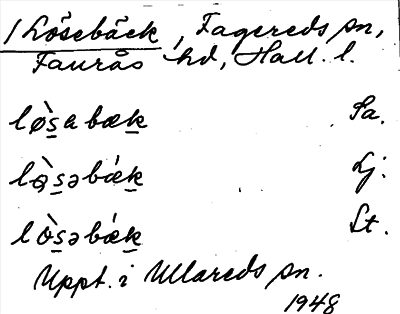 / Lösebäck, Fagereds sn,
Faurås hd, Hall. l.
lø̀s̲abæk̲ Sa.
lø̀s̲əbǽk̲ Lj.
lɷ̀s̲əbǽk̲ St.
Uppt. i Ullareds sn.
1948